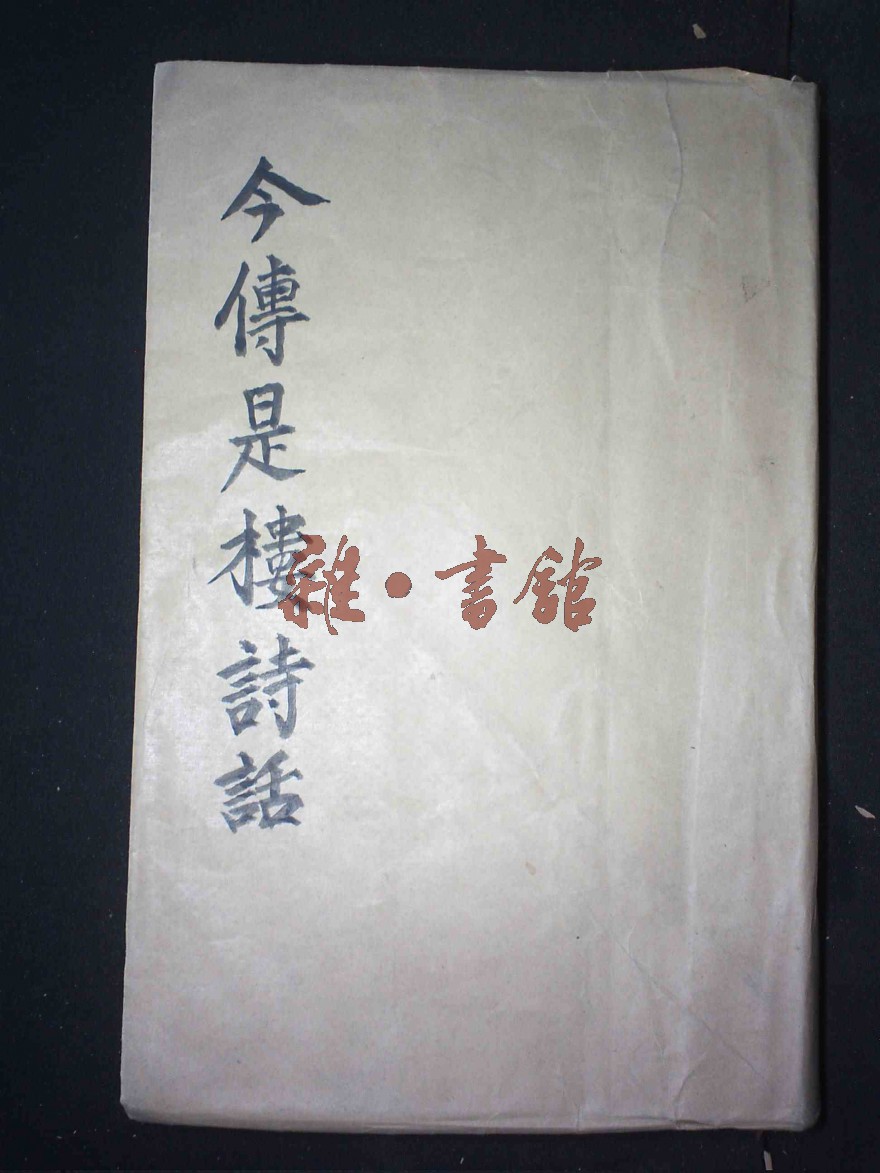 今傳是樓詩話
雜·書館